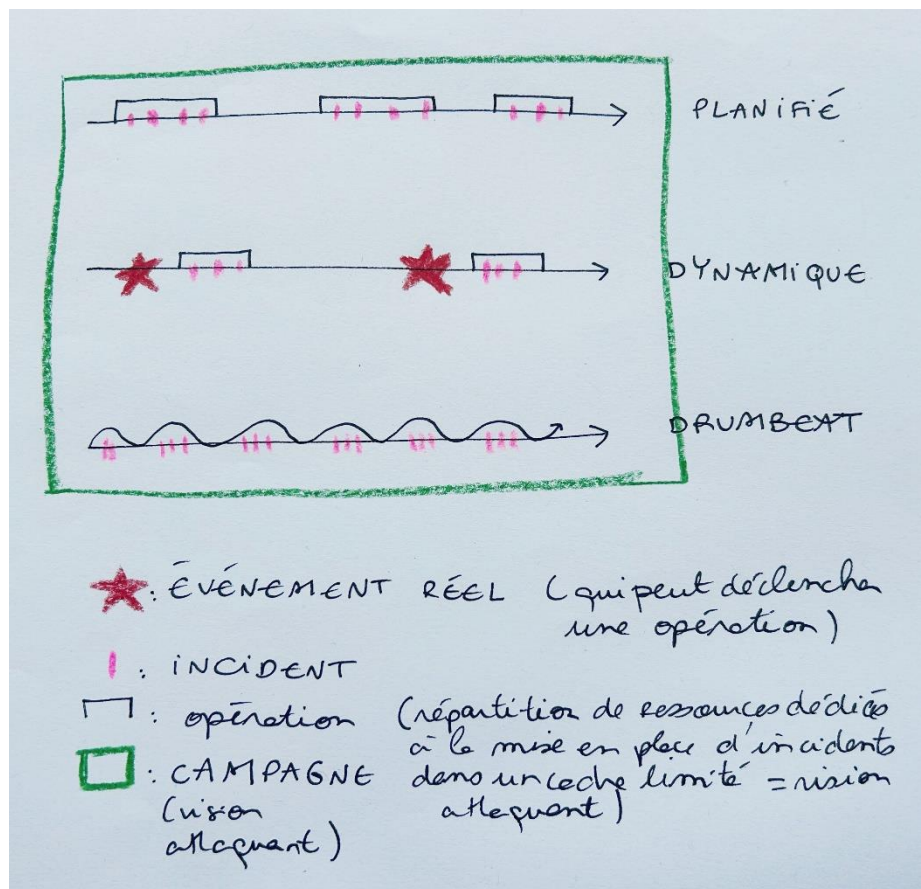 PLANIFIÉ
DYNAMIQUE
DRUMBEAT
: ÉVÉNEMENT RÉEL (qui peut déclencher
une opération)
: INCIDENT
: opération (répartition de ressources dédiés
à la mise en place d'incidents
: CAMPAGNE dans un cadre limité = vision
(vision attaquant)
attaquant)